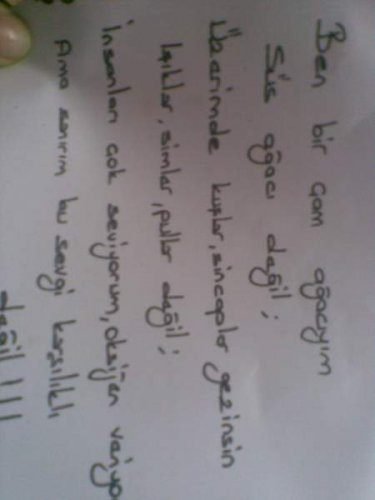 Ben bir çam ağacıyım
Süs ağacı değil;
Üzerimde kuşlar, sincaplar gezinsin
Işıklar, simler, pullar değil;
İnsanları çok seviyorum, oksijen veriyo
Ama sanırım bu sevgi karşılıklı
değil!!!